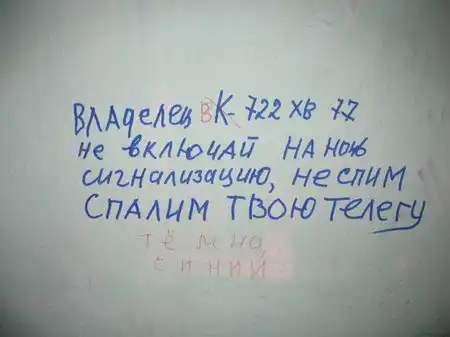 ВЛАДЕЛЕЦ ВК- 722 ХВ 77
не включАЙ НА ночь
сигнализацию, не спим
СПАЛИМ ТВОЮ Телегу
тёмно
синий